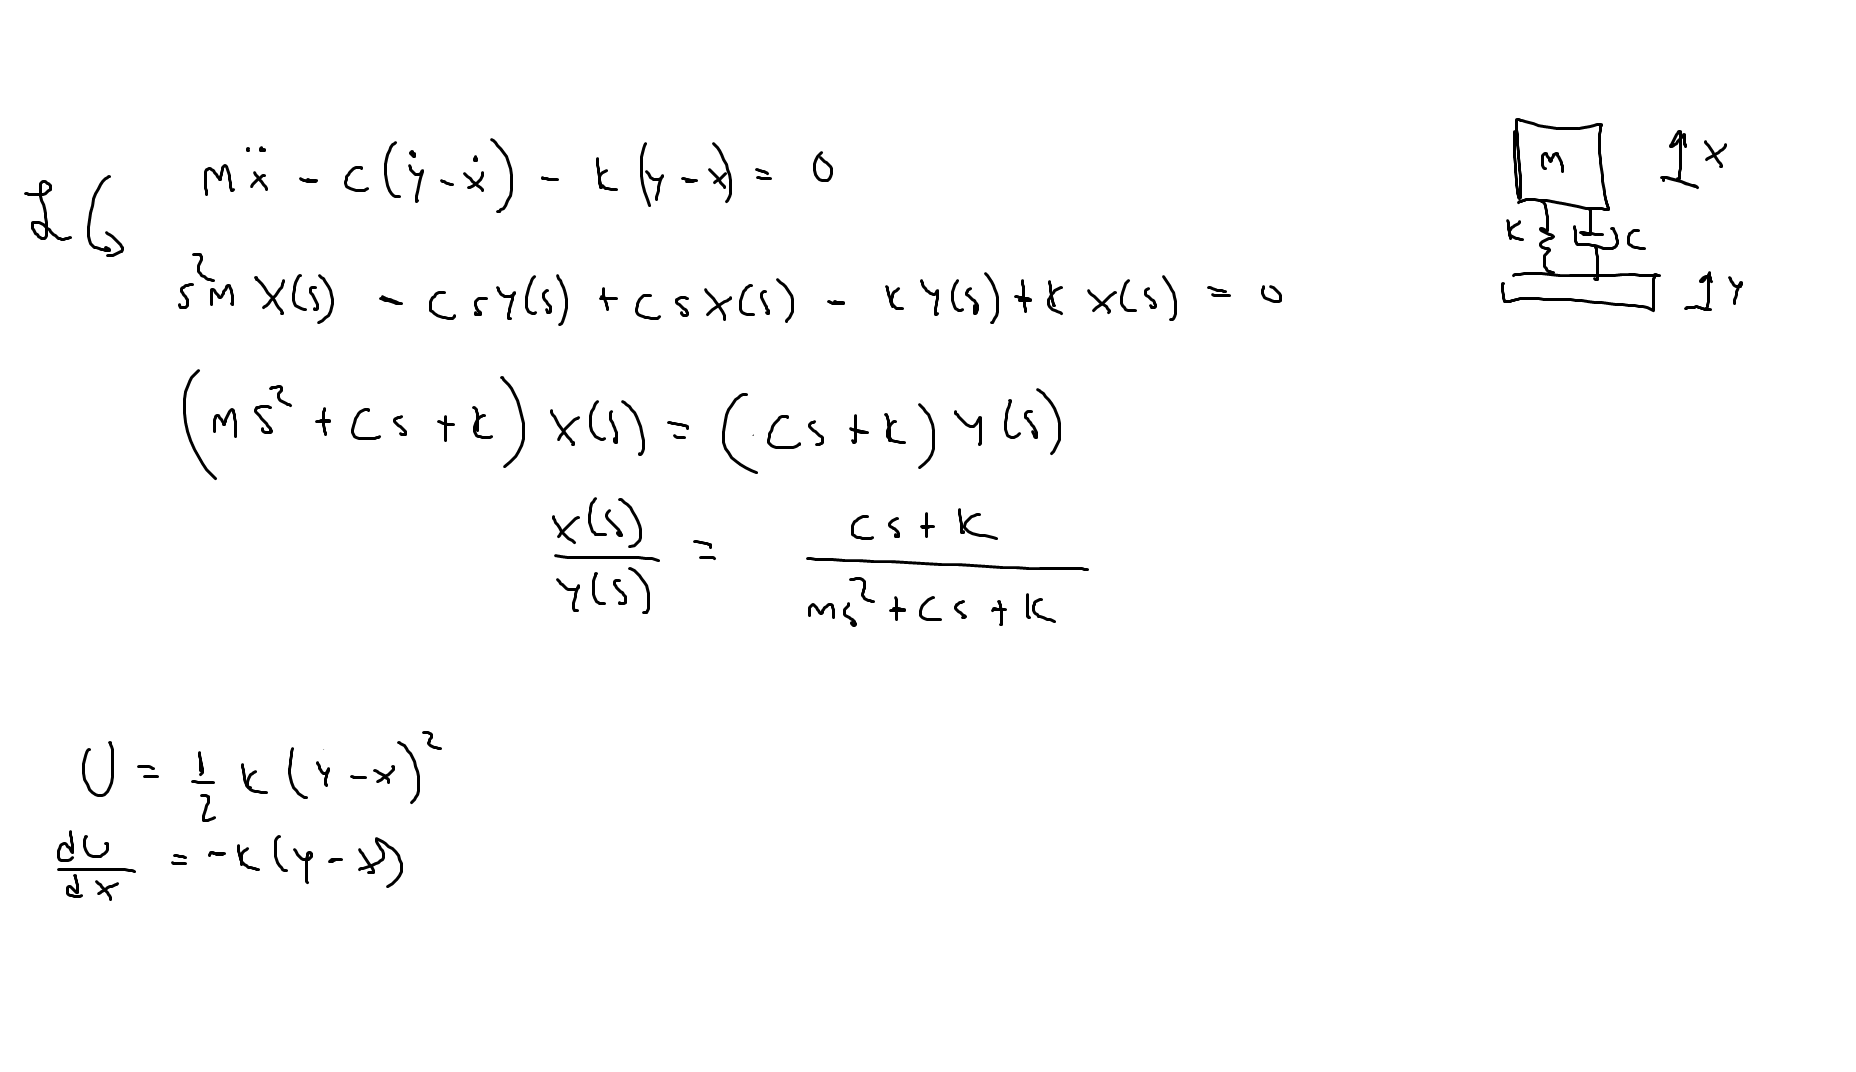 ℒ
mẍ - c(ẏ-ẋ) - k(y-x) = 0
s²m X(s) - c s Y(s) + c s X(s) - k Y(s) + k X(s) = 0
(ms² + cs + k) X(s) = (cs + k) Y(s)
X(s)/Y(s) = (cs + k)/(ms² + cs + k)
U = 1/2 k (y-x)²
dU/dx = -k(y-x)
M
x
k
c
y